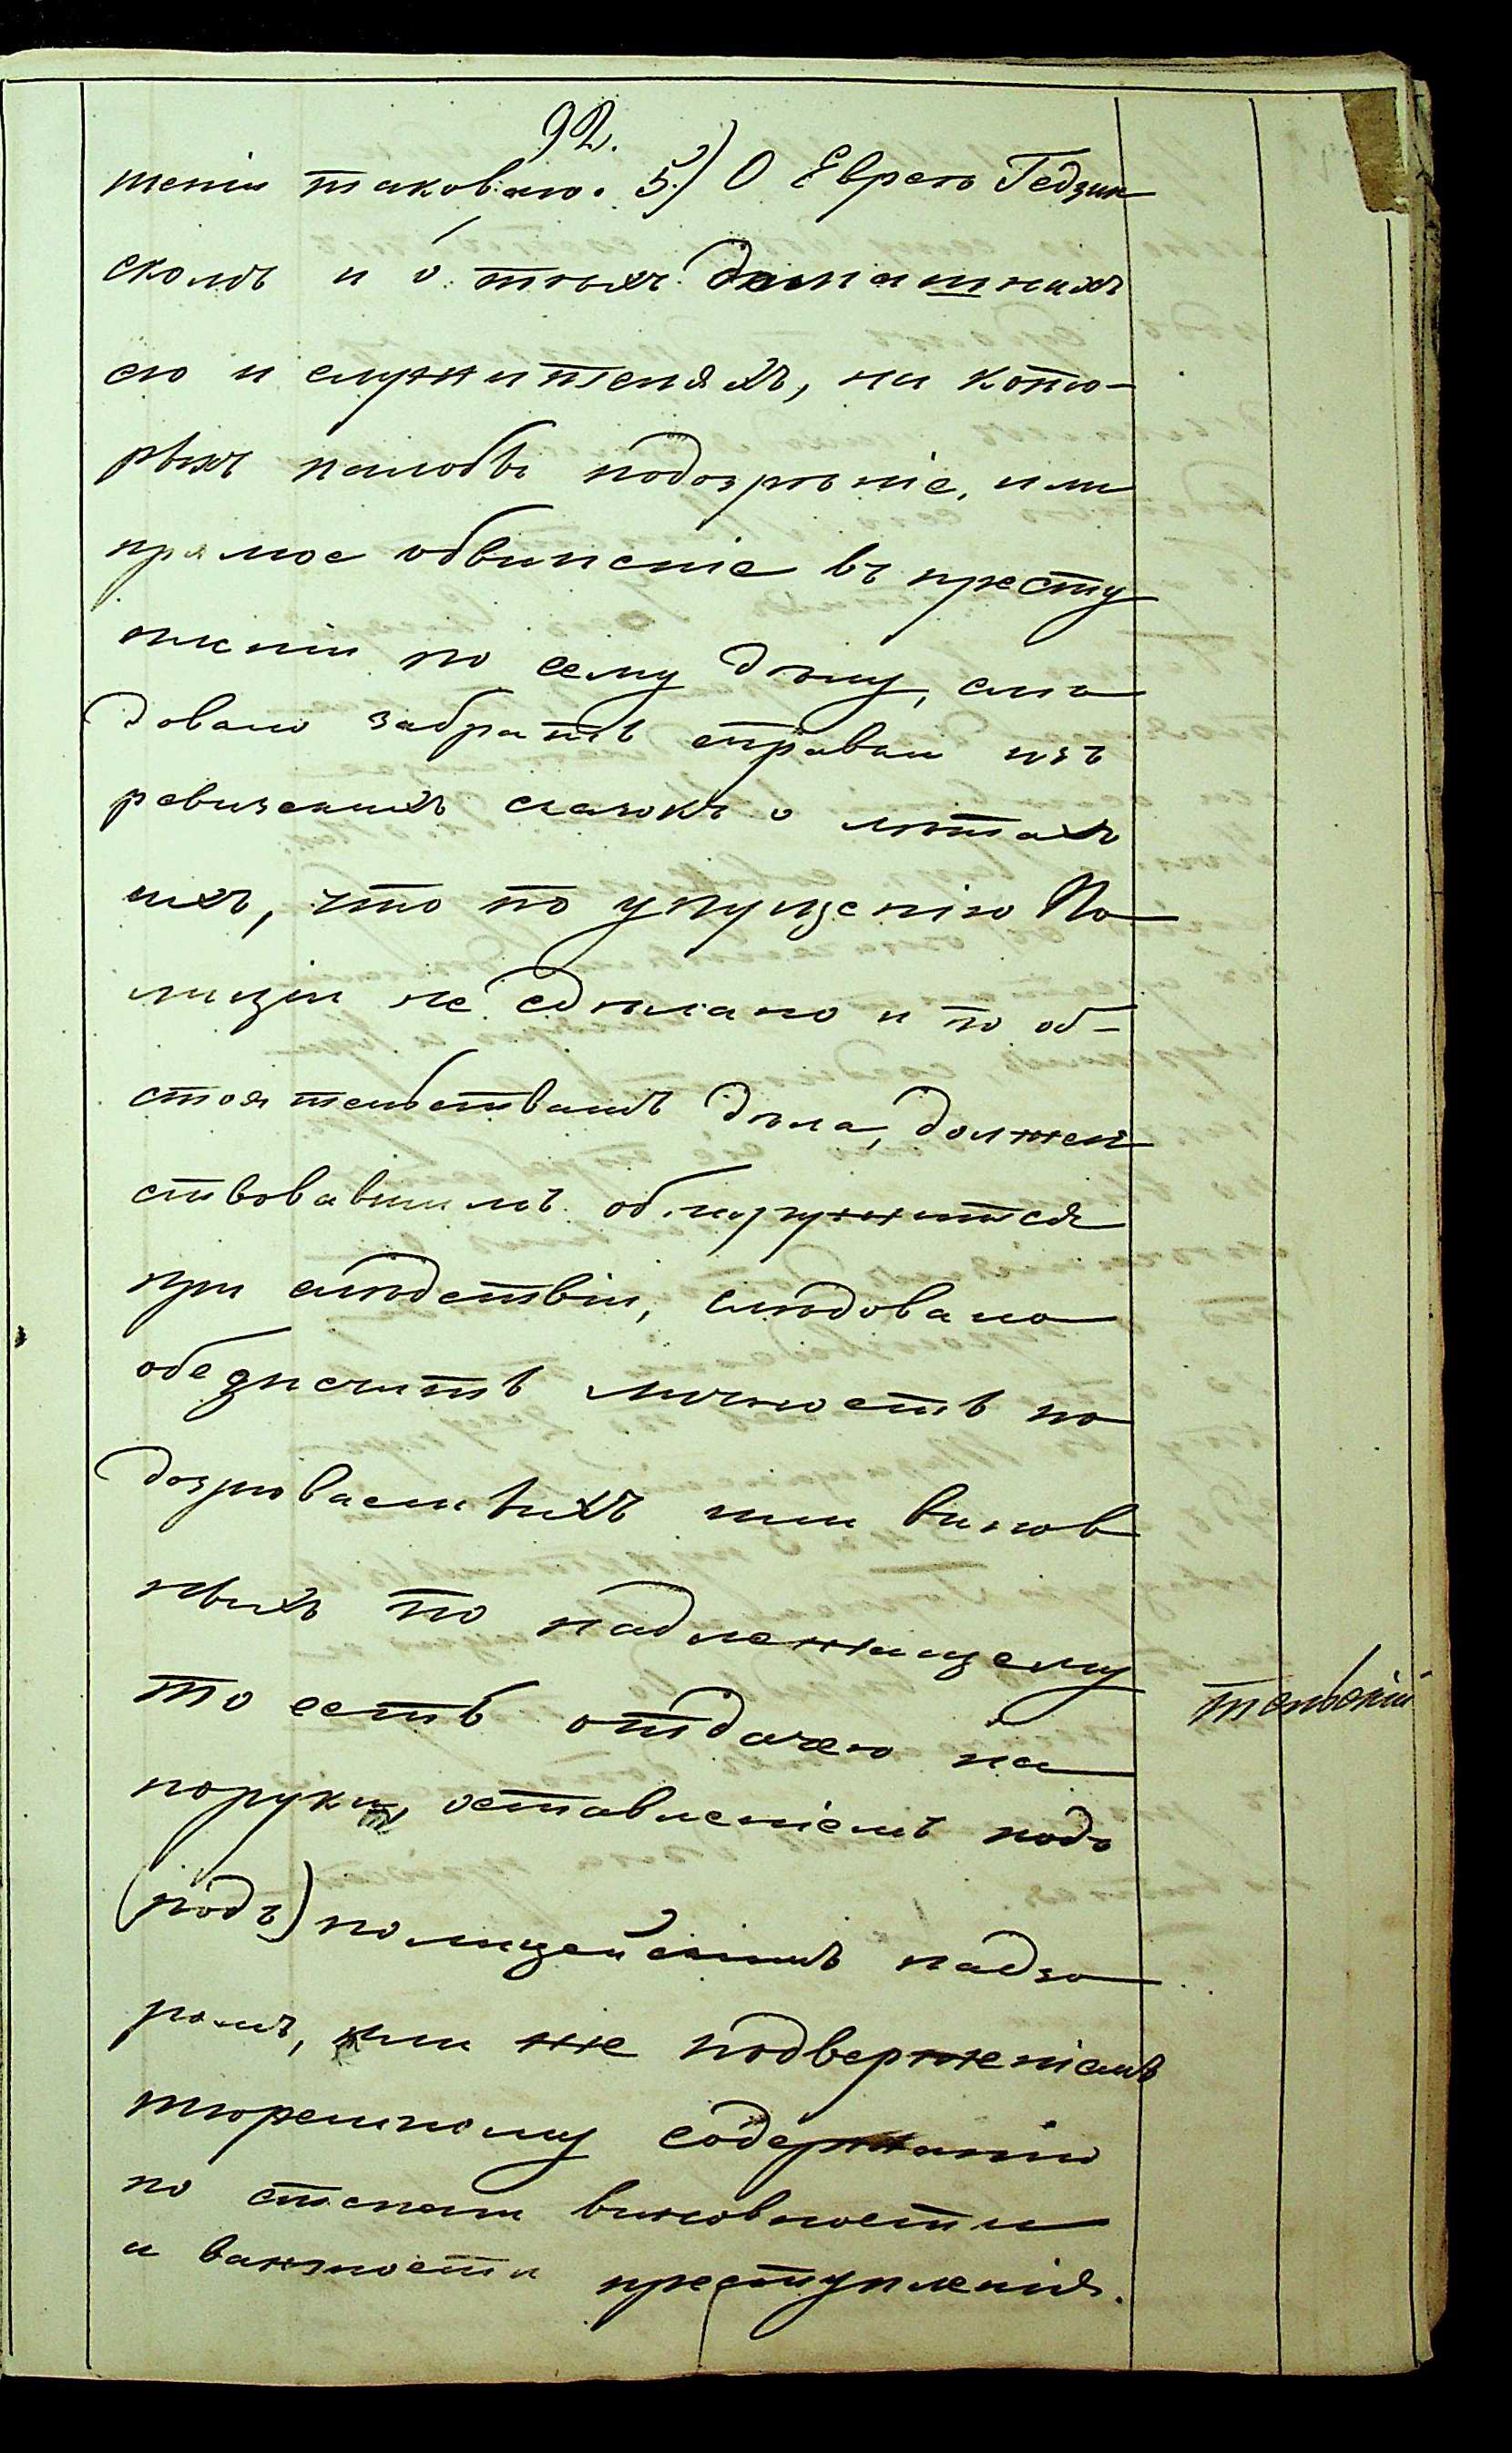 92.
тенiи таковаго. 5.) О Евреѣ Гедзин
скомъ и о тѣхъ домашнихъ
его и служителяхъ, на кото-
рыхъ палобъ подозрѣніе, или
прямое обвиненіе въ престу
пленіи по сему дѣлу, слѣ
довало забрать справки изъ
ревизскихъ сказокъ о лѣтахъ
ихъ, что по упущенію По
лиціи не сдѣлано и по об-
стоятельствамъ дѣла, должен
ствовавшимъ обнаружится
при слѣдствіи, слѣдовало
обезпечить личность по
дозрѣваемыхъ или винов
ныхъ по надлежащему
то есть отдачею на
поруки, оставленіемъ подъ
(подъ) полицейскимъ надзо
ромъ, или же подверженіемъ
тюремному содержанію
по степени виновности
и важности преступленія.